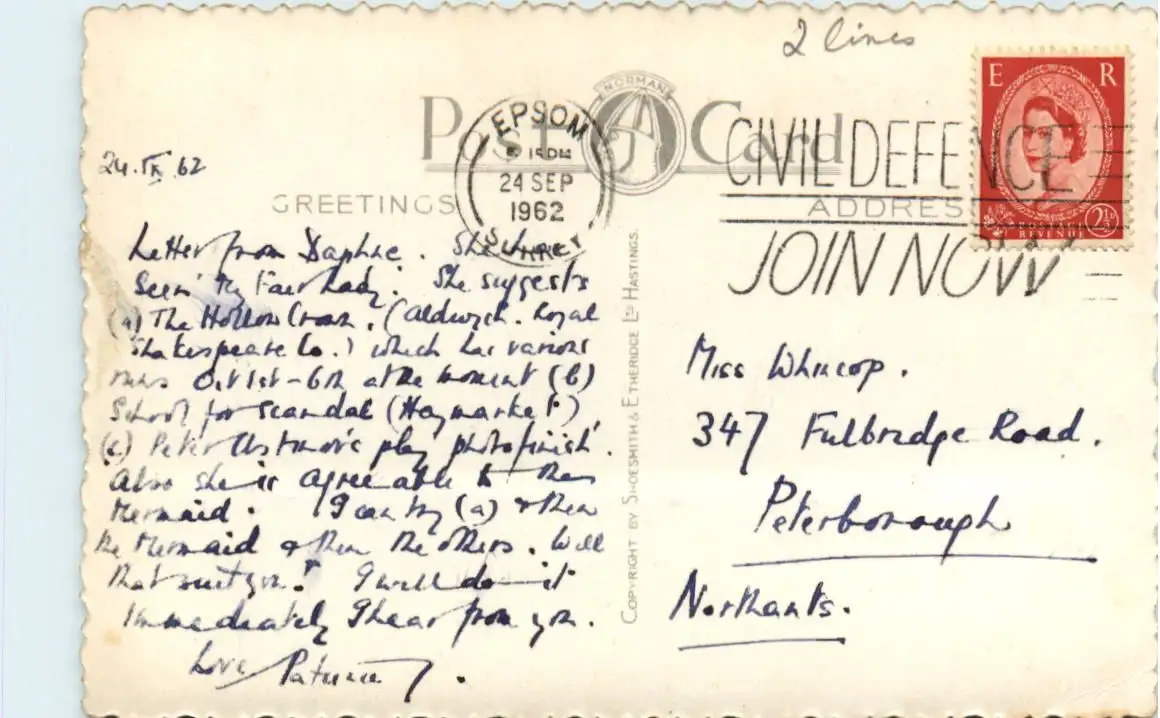 2 lines
NORMAN
Post Card
E R
EPSOM
15 PM
24 SEP
1962
SURREY
CIVIL DEFENCE
JOIN NOW
POSTAGE
REVENUE
2½D
24.IX.62
GREETINGS
ADDRESS
Letter from Daphne. She has
seen My Fair Lady. She suggests
(a) The Hollow Crown. (Aldwych. Royal
Shakespeare Co.) which has various
runs Oct 1st-6th at the moment (b)
School for Scandal (Haymarket)
(c) Peter Ustinov's play 'photofinish'.
Also she is agreeable to the
Mermaid. I can try (a) & then
the Mermaid & then the others. Will
that suit you? I will do it
immediately I hear from you.
Love
COPYRIGHT BY SHOESMITH & ETHERIDGE LTD HASTINGS.
Miss Whincop.
347 Fulbridge Road.
Peterborough
Northants.